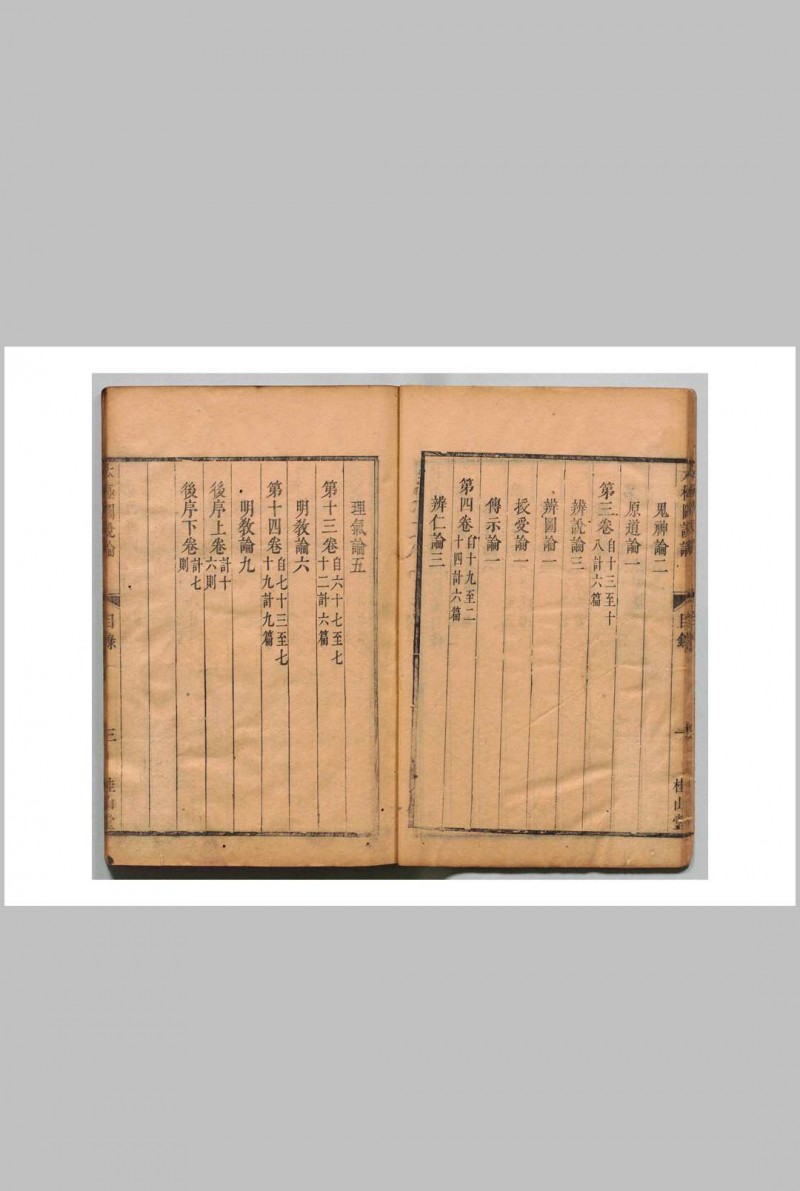 鬼神論二
原道論一
第三卷自十三至十八計六篇
辨說論三
辨圖論一
授受論一
傳示論一
第四卷自十九至二十四計六篇
辨仁論三
理氣論五
第十三卷自六十七至七十二計六篇
明教論六
第十四卷自七十三至七十九計九篇
明教論九
後序上卷計十六則
後序下卷計七則
太極圖說論
目錄
三
桂山堂
太極圖說論
目錄
桂山堂